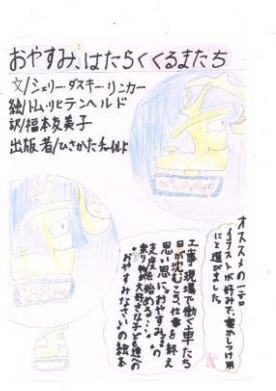 おやすみ、はたらくくるまたち
文/シェリー・ダスキー・リンカー
絵/トム・リヒテンヘルド
訳/福本友美子
出版者/ひさかたチャイルド
オススメの一言
イラストが好みで、寝かしつけ用
にと選びました。
工事現場で働く車たち
日が沈むころ、仕事を終え
思い思いにおやすみの
支度を始める…。
乗り物大好きな子ども達への
"おやすみなさい"の絵本